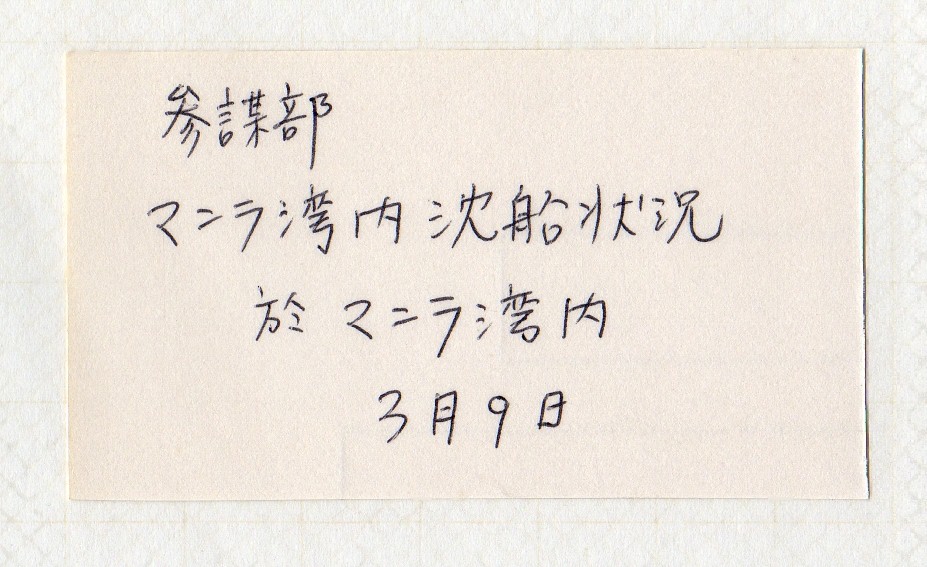 参謀部
マニラ湾内沈船状況
於マニラ湾内
3月9日